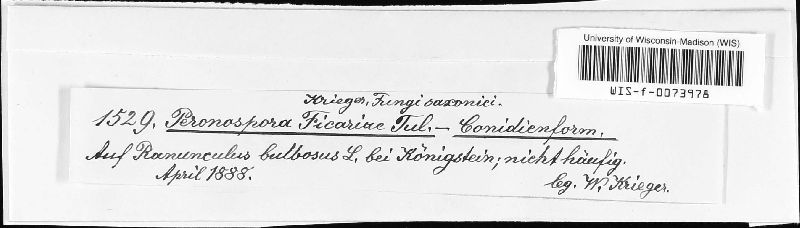 University of Wisconsin-Madison (WIS)
WIS-f-0073978
Krieger, Fungi saxonici.
1529. Peronospora Ficariae Tul. – Conidienform.
Auf Ranunculus bulbosus L. bei Königstein; nicht häufig.
April 1888. lg. W. Krieger.